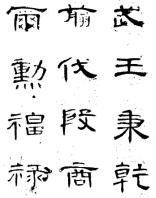 武王秉乾
翦伐殷商
爾勳福祿